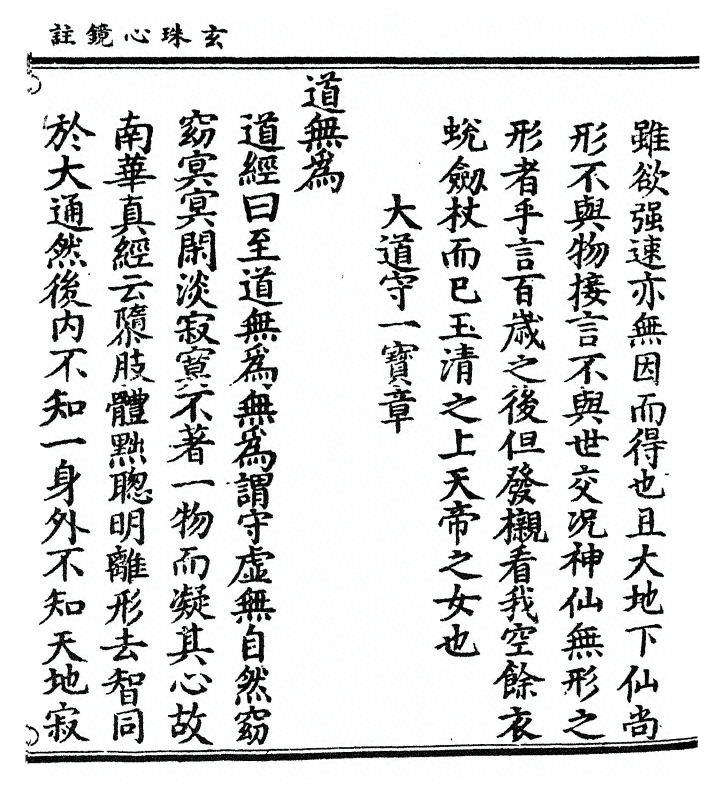 玄珠心鏡註
雖欲强速亦無因而得也且大地下仙尚
形不與物接言不與世交况神仙無形之
形者乎言百歲之後但發櫬看我空餘衣
蛻劒杖而已玉清之上天帝之女也
大道守一寶章
道無爲
道經曰至道無爲無爲謂守虛無自然窈
窈冥冥閑淡寂寞不著一物而凝其心故
南華真經云隳肢體黜聰明離形去智同
於大通然後内不知一身外不知天地寂